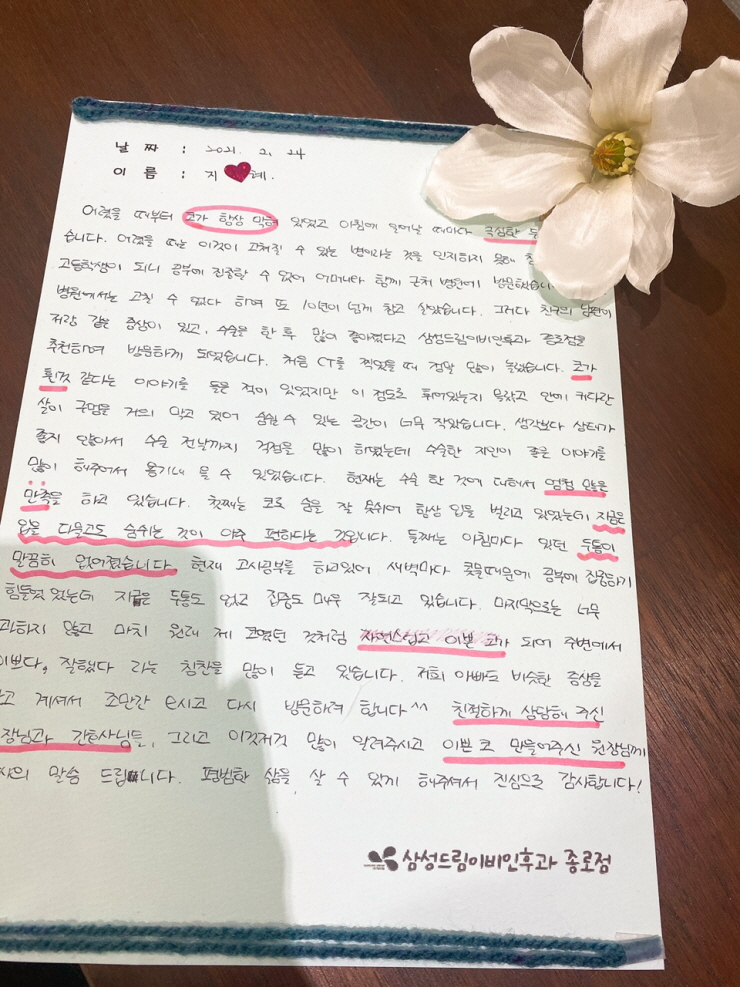 날 짜 : 2021. 2. 24
이 름 : 지♥혜.
어렸을 때부터 코가 항상 막혀 있었고 아침에 일어날 때마다 극심한
습니다. 어렸을 때는 이것이 고쳐질 수 있는 병이라는 것을 인지하지 못해
고등학생이 되니 공부에 집중할 수 없어 어머니와 함께 근처 병원에 방문했습니
병원에서는 고칠 수 없다 하여 또 10년이 넘게 참고 살았습니다. 그러다 친구의 남편이
저랑 같은 증상이 있고, 수술을 한 후 많이 좋아졌다고 삼성드림이비인후과 종로점을
추천하여 방문하게 되었습니다. 처음 CT를 찍었을 때 정말 많이 놀랐습니다. 코가
휜것 같다는 이야기를 들은 적이 있었지만 이 정도로 휘어있는지 몰랐고 안에 커다란
살이 구멍을 거의 막고 있어 숨쉴 수 있는 공간이 너무 작았습니다. 생각보다 상태가
좋지 않아서 수술 전날까지 걱정을 많이 하였는데 수술한 지인이 좋은 이야기를
많이 해주어서 용기내 올 수 있었습니다. 현재는 수술 한 것에 대해서 엄청 많은
만족을 하고 있습니다. 첫째는 코로 숨을 잘 못쉬어 항상 입을 벌리고 있었는데 지금은
입을 다물고도 숨쉬는 것이 아주 편하다는 것입니다. 둘째는 아침마다 있던 두통이
말끔히 없어졌습니다. 현재 고시공부를 하고있어 새벽마다 콧물때문에 공부에 집중하기
힘들었었는데 지금은 두통도 없고 집중도 매우 잘되고 있습니다. 마지막으로는 너무
과하지 않고 마치 원래 제 코였던 것처럼 자연스럽고 이쁜 코가 되어 주변에서
이쁘다, 잘했다 라는 칭찬을 많이 듣고 있습니다. 저희 아빠도 비슷한 증상을
고 계셔서 조만간 모시고 다시 방문하려 합니다^^ 친절하게 상담해 주신
장님과 간호사님들, 그리고 이것저것 많이 알려주시고 이쁜 코 만들어주신 원장님께
사의 말씀 드립니다. 평범한 삶을 살 수 있게 해주셔서 진심으로 감사합니다!
삼성드림이비인후과 종로점